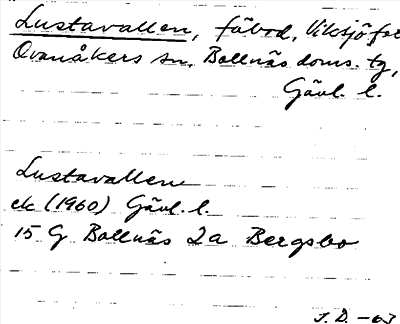 Lustavallen, fäbod, Viksjöfor
Ovanåkers sn, Bollnäs doms. tg,
Gävl. l.
Lustavallen
ek (1960) Gävl. l.
15 G Bollnäs 2a Bergsbo
J. D. -63